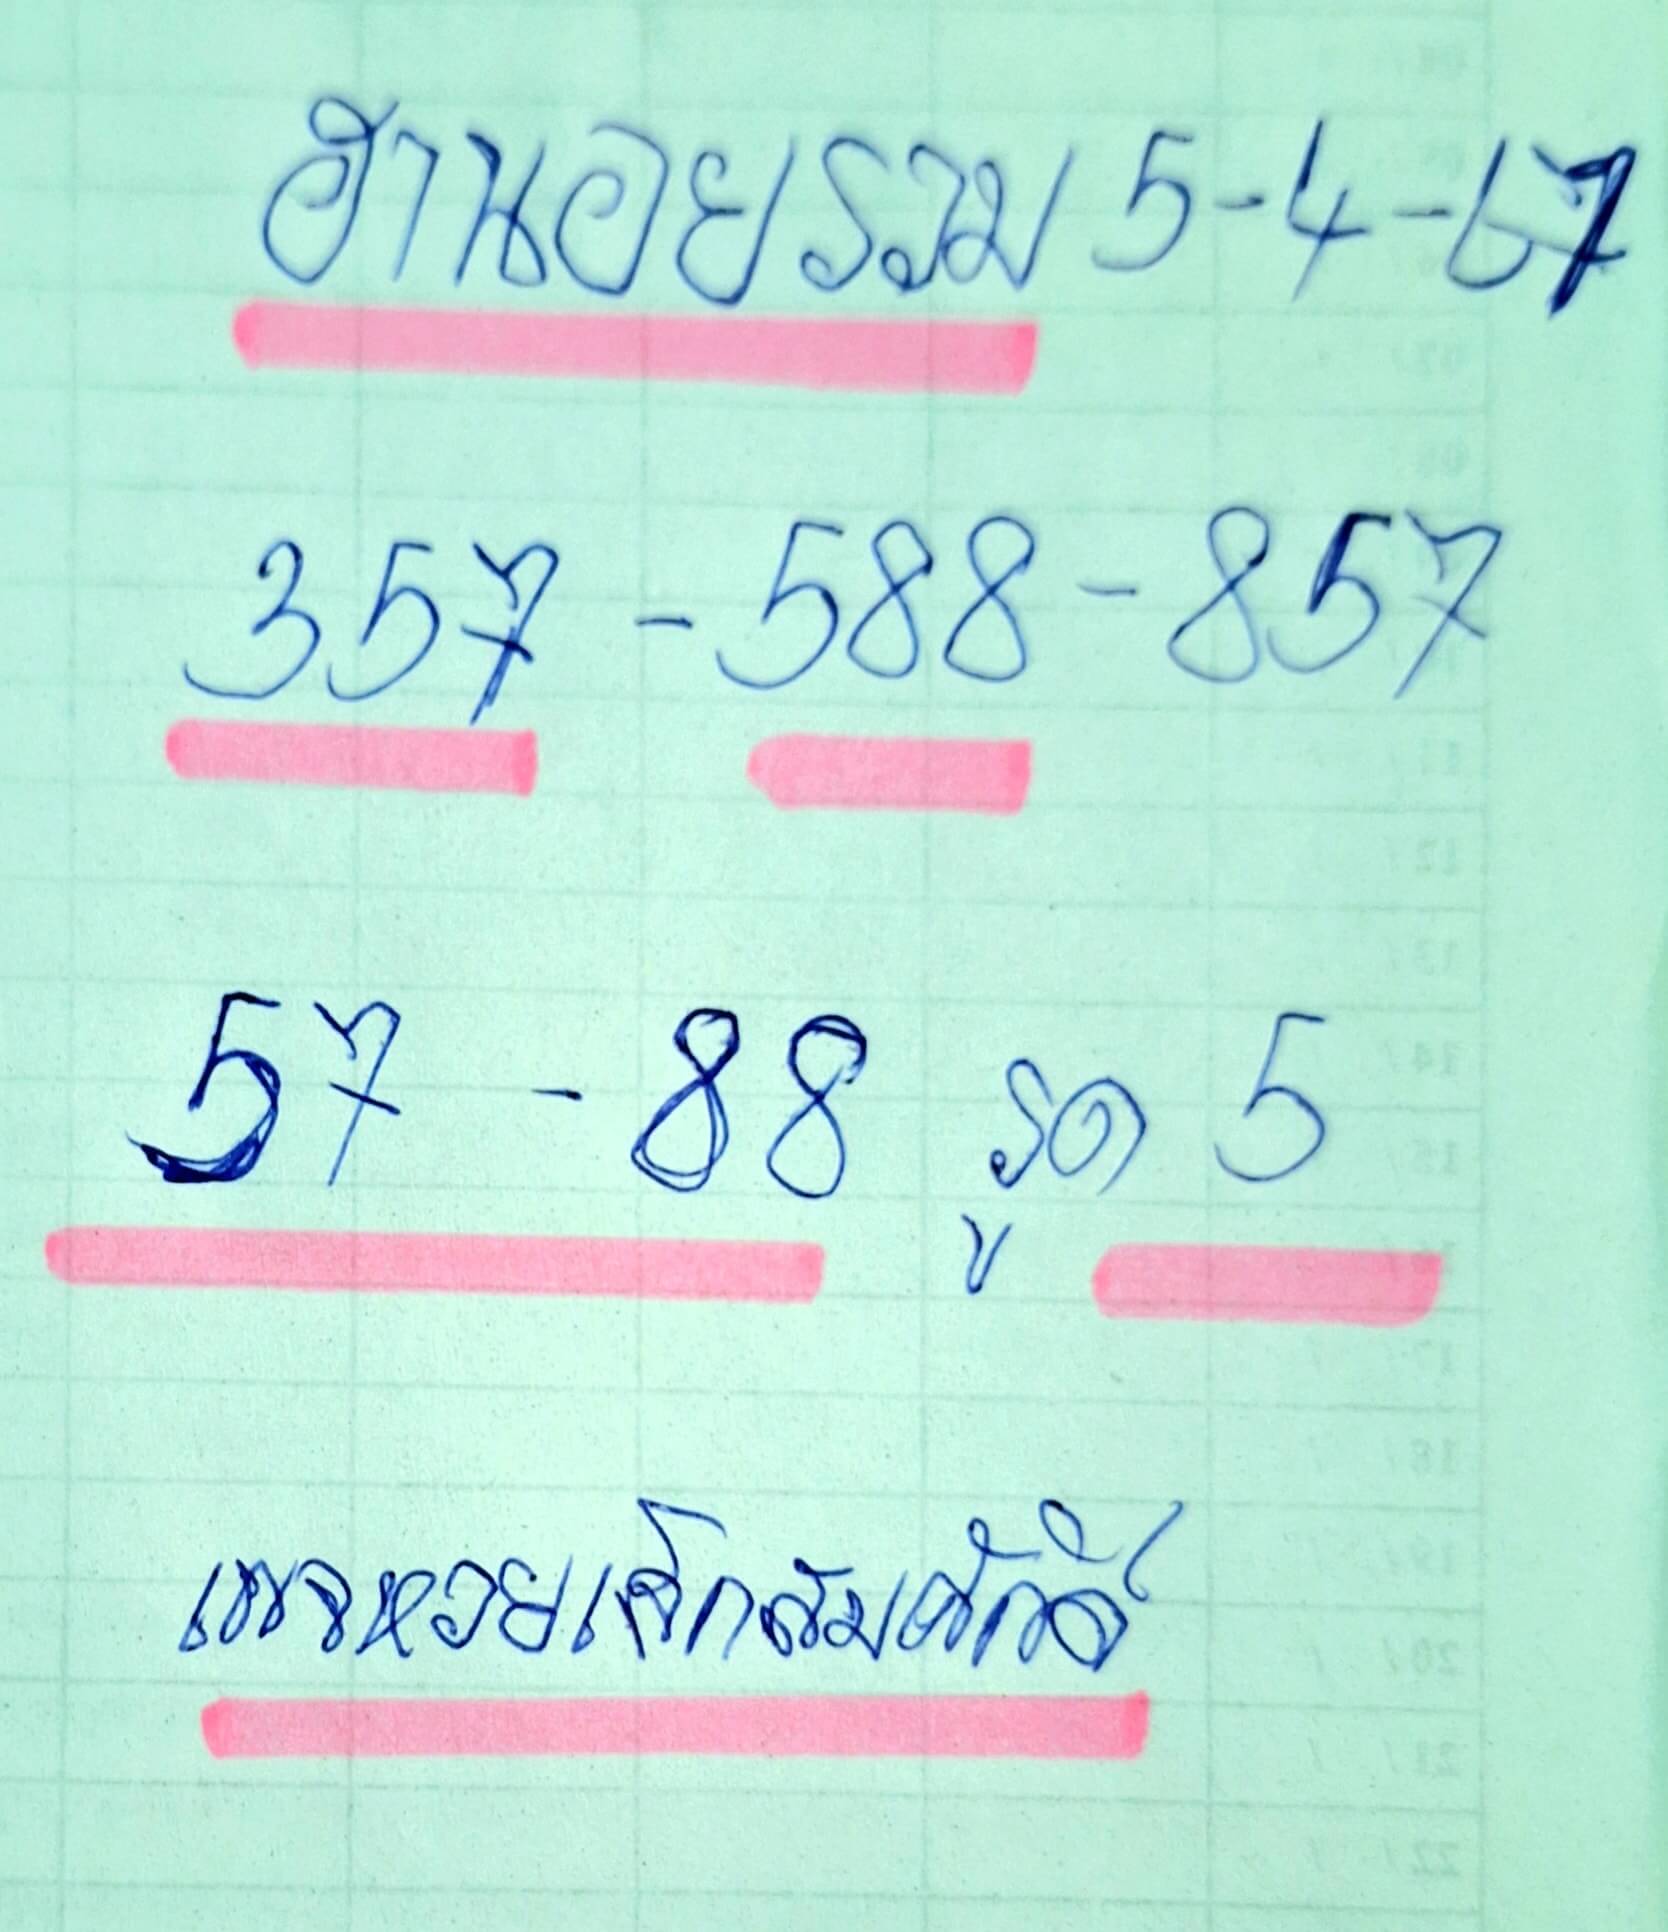 ฮานอยรวม 5-4-67
357 - 588 - 857
57 - 88 รูด 5
เพจหวยเจ็กสมศักดิ์